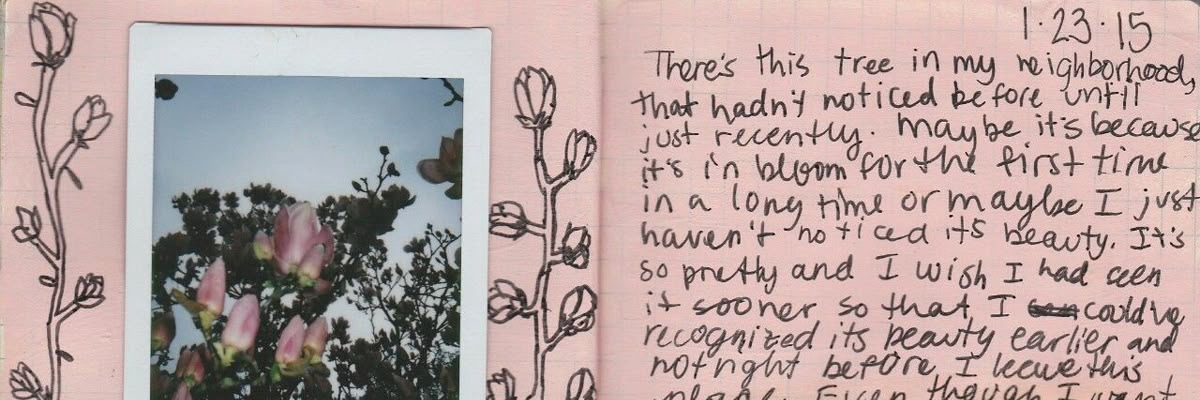 1·23·15
There's this tree in my neighborhood,
that hadn't noticed before until
just recently. Maybe it's because
it's in bloom for the first time
in a long time or maybe I just
haven't noticed its beauty. It's
so pretty and I wish I had seen
it sooner so that I could've
recognized its beauty earlier and
not right before I leave this
place. Even though I want